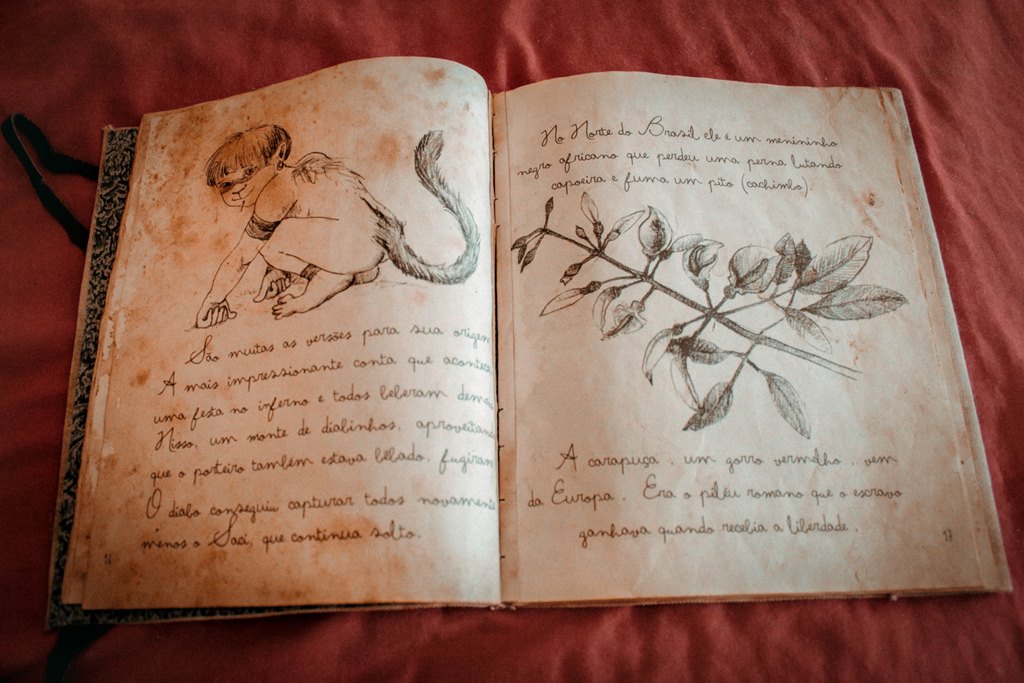 São muitas as versões para sua origem
A mais impressionante conta que aconteceu
uma festa no inferno e todos beberam demais
Nisso, um monte de diabinhos, aproveitando
que o porteiro também estava bêbado, fugiram
O diabo conseguiu capturar todos novamente
menos o Saci, que continua solto.
16
No Norte do Brasil ele é um menininho
negro africano que perdeu uma perna lutando
capoeira e fuma um pito (cachimbo).
A carapuça, um gorro vermelho, vem
da Europa. Era o píleu romano que o escravo
ganhava quando recebia a liberdade.
17